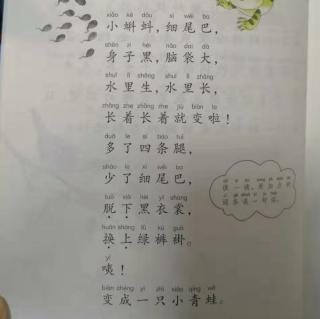 xiǎo kē dǒu xì wěi ba
小蝌蚪，细尾巴，
shēn zi hēi nǎo dai dà
身子黑，脑袋大，
shuǐ lǐ shēng shuǐ lǐ zhǎng
水里生，水里长，
zhǎng zhe zhǎng zhe jiù biàn la
长着长着就变啦！
duō le sì tiáo tuǐ
多了四条腿，
shǎo le xì wěi ba
少了细尾巴，
tuō xià hēi yī shang
脱下黑衣裳，
huàn shàng lǜ kù guà
换上绿裤褂。
yí
咦！
biàn chéng yì zhī xiǎo qīng wā
变成一只小青蛙。